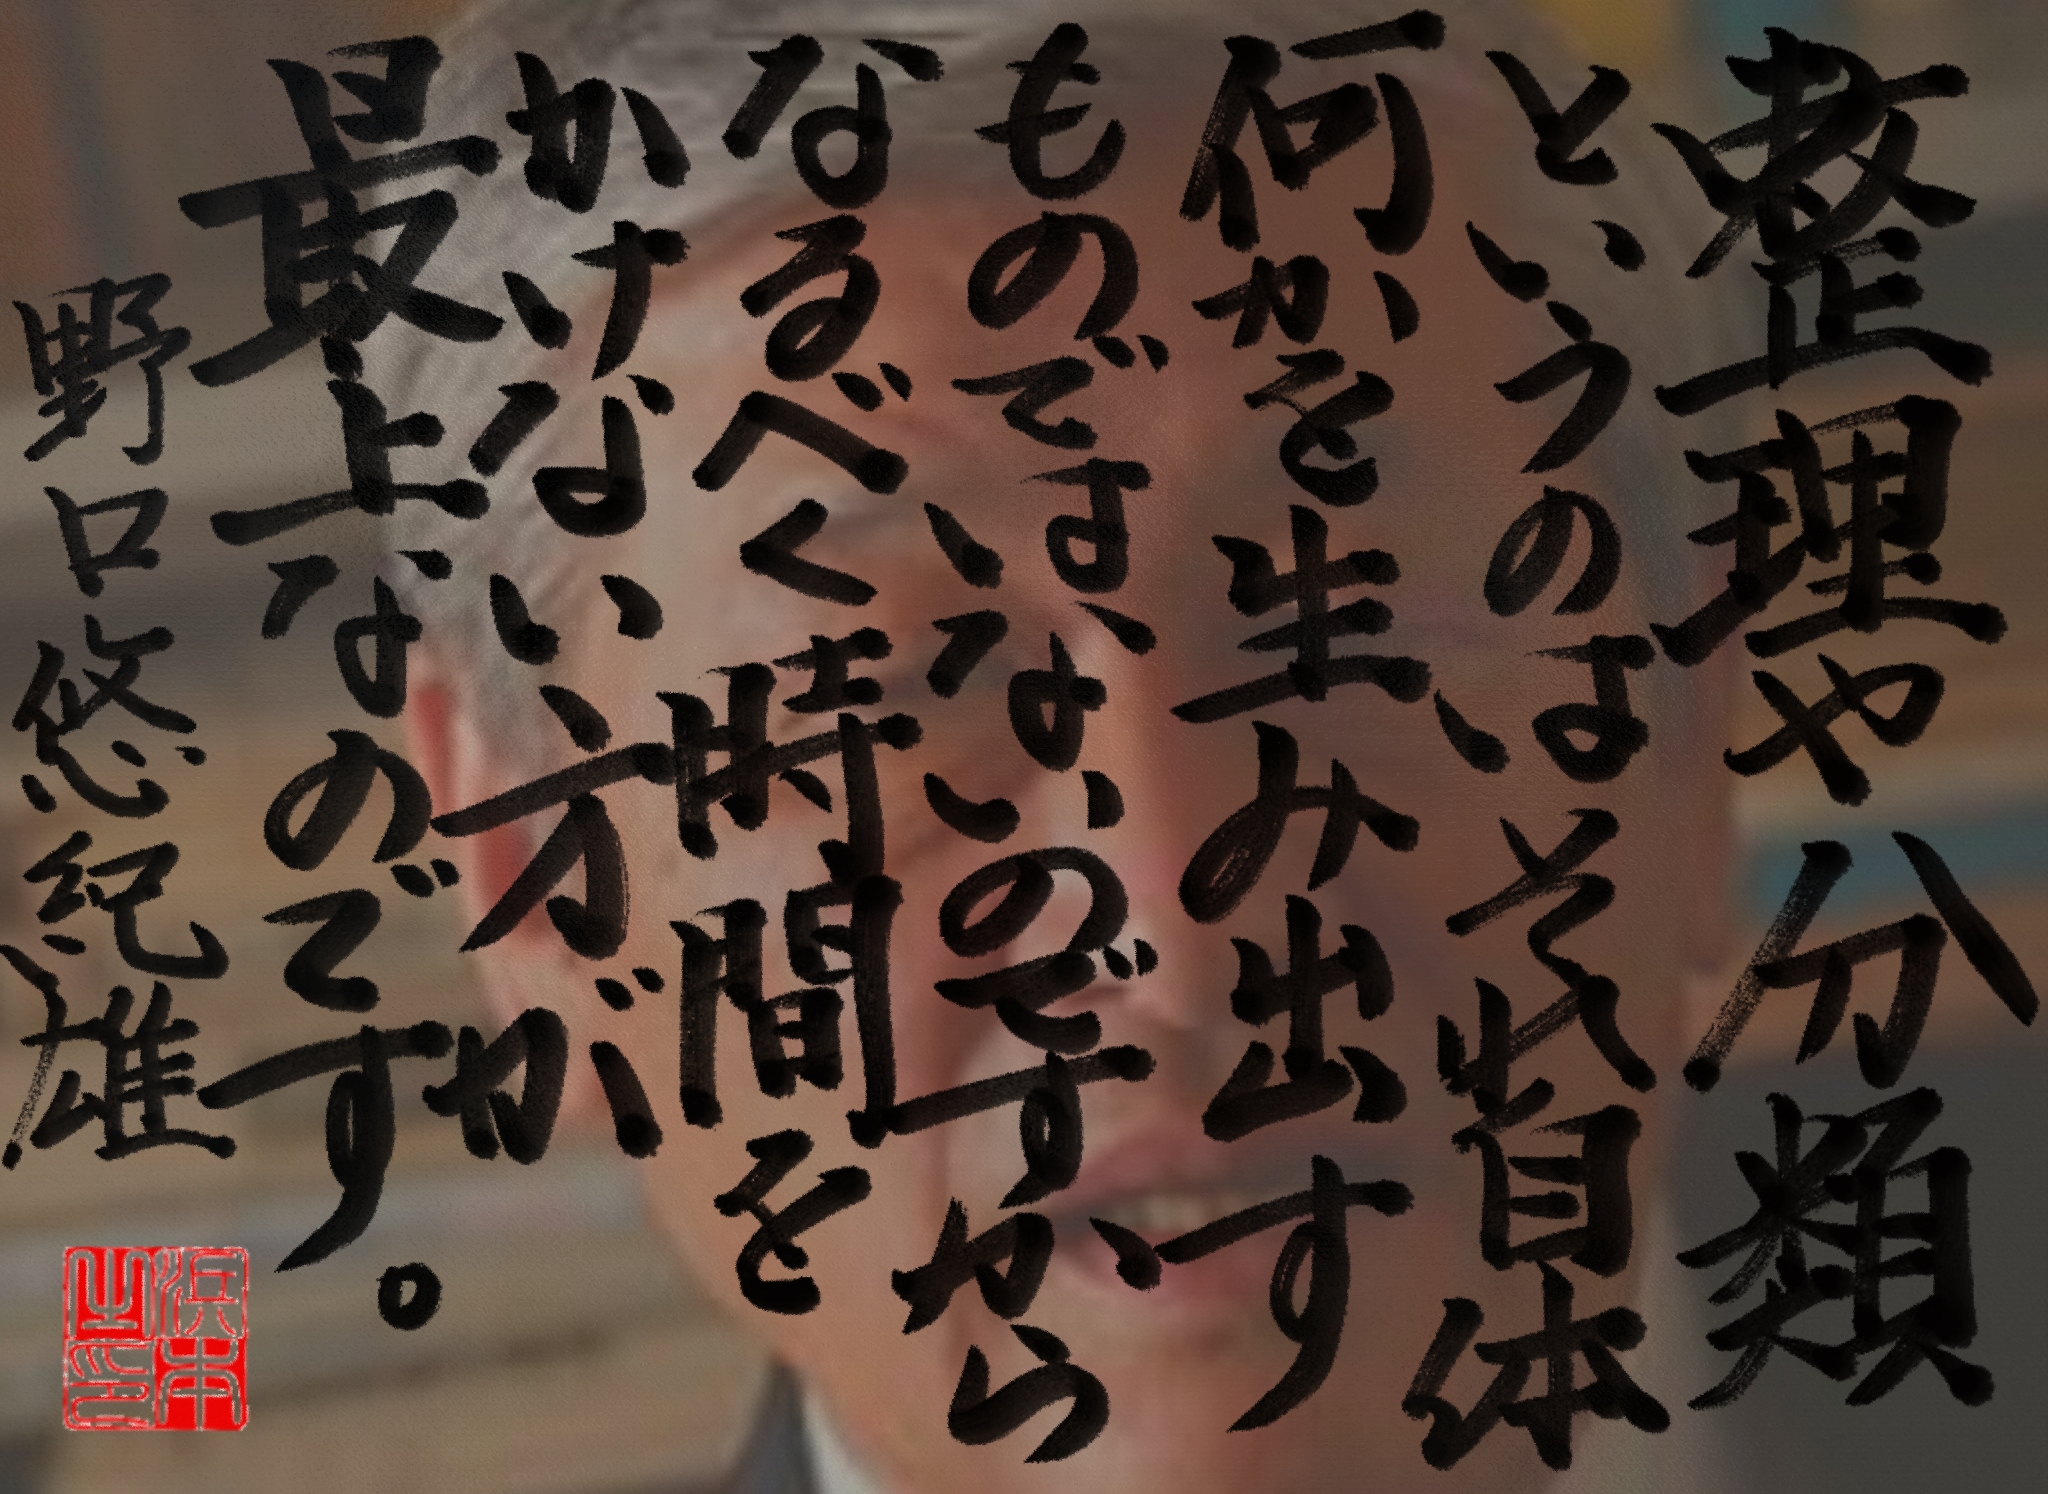 整理や分類
というのは、それ自体
何かを生み出す
ものではないのですから、
なるべく時間を
かけない方が
最上なのです。
野口悠紀雄
浜本
之印